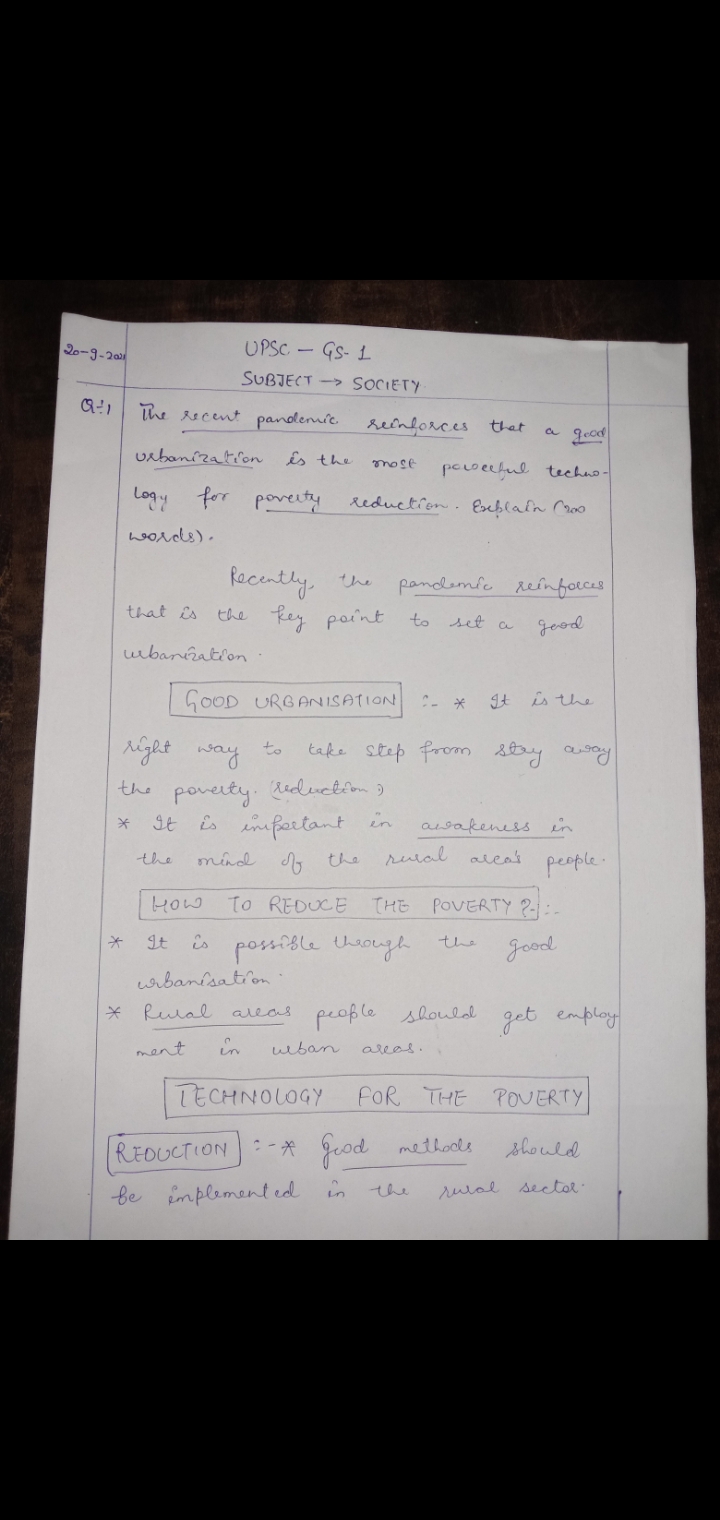 20-9-2021
UPSC – GS-1
SUBJECT → SOCIETY
Q:1 The recent pandemic reinforces that a good
urbanization is the most powerful techno-
logy for poverty reduction. Explain (200
words).
Recently, the pandemic reinforces
that is the key point to set a good
urbanization.
GOOD URBANISATION :- * It is the
right way to take step from stay away
the poverty. (reduction)
* It is important in awakeness in
the mind of the rural area's people.
HOW TO REDUCE THE POVERTY ?- :-
* It is possible through the good
urbanisation.
* Rural areas people should get employ
ment in urban areas.
TECHNOLOGY FOR THE POVERTY
REDUCTION :- * Good methods should
be implemented in the rural sector.